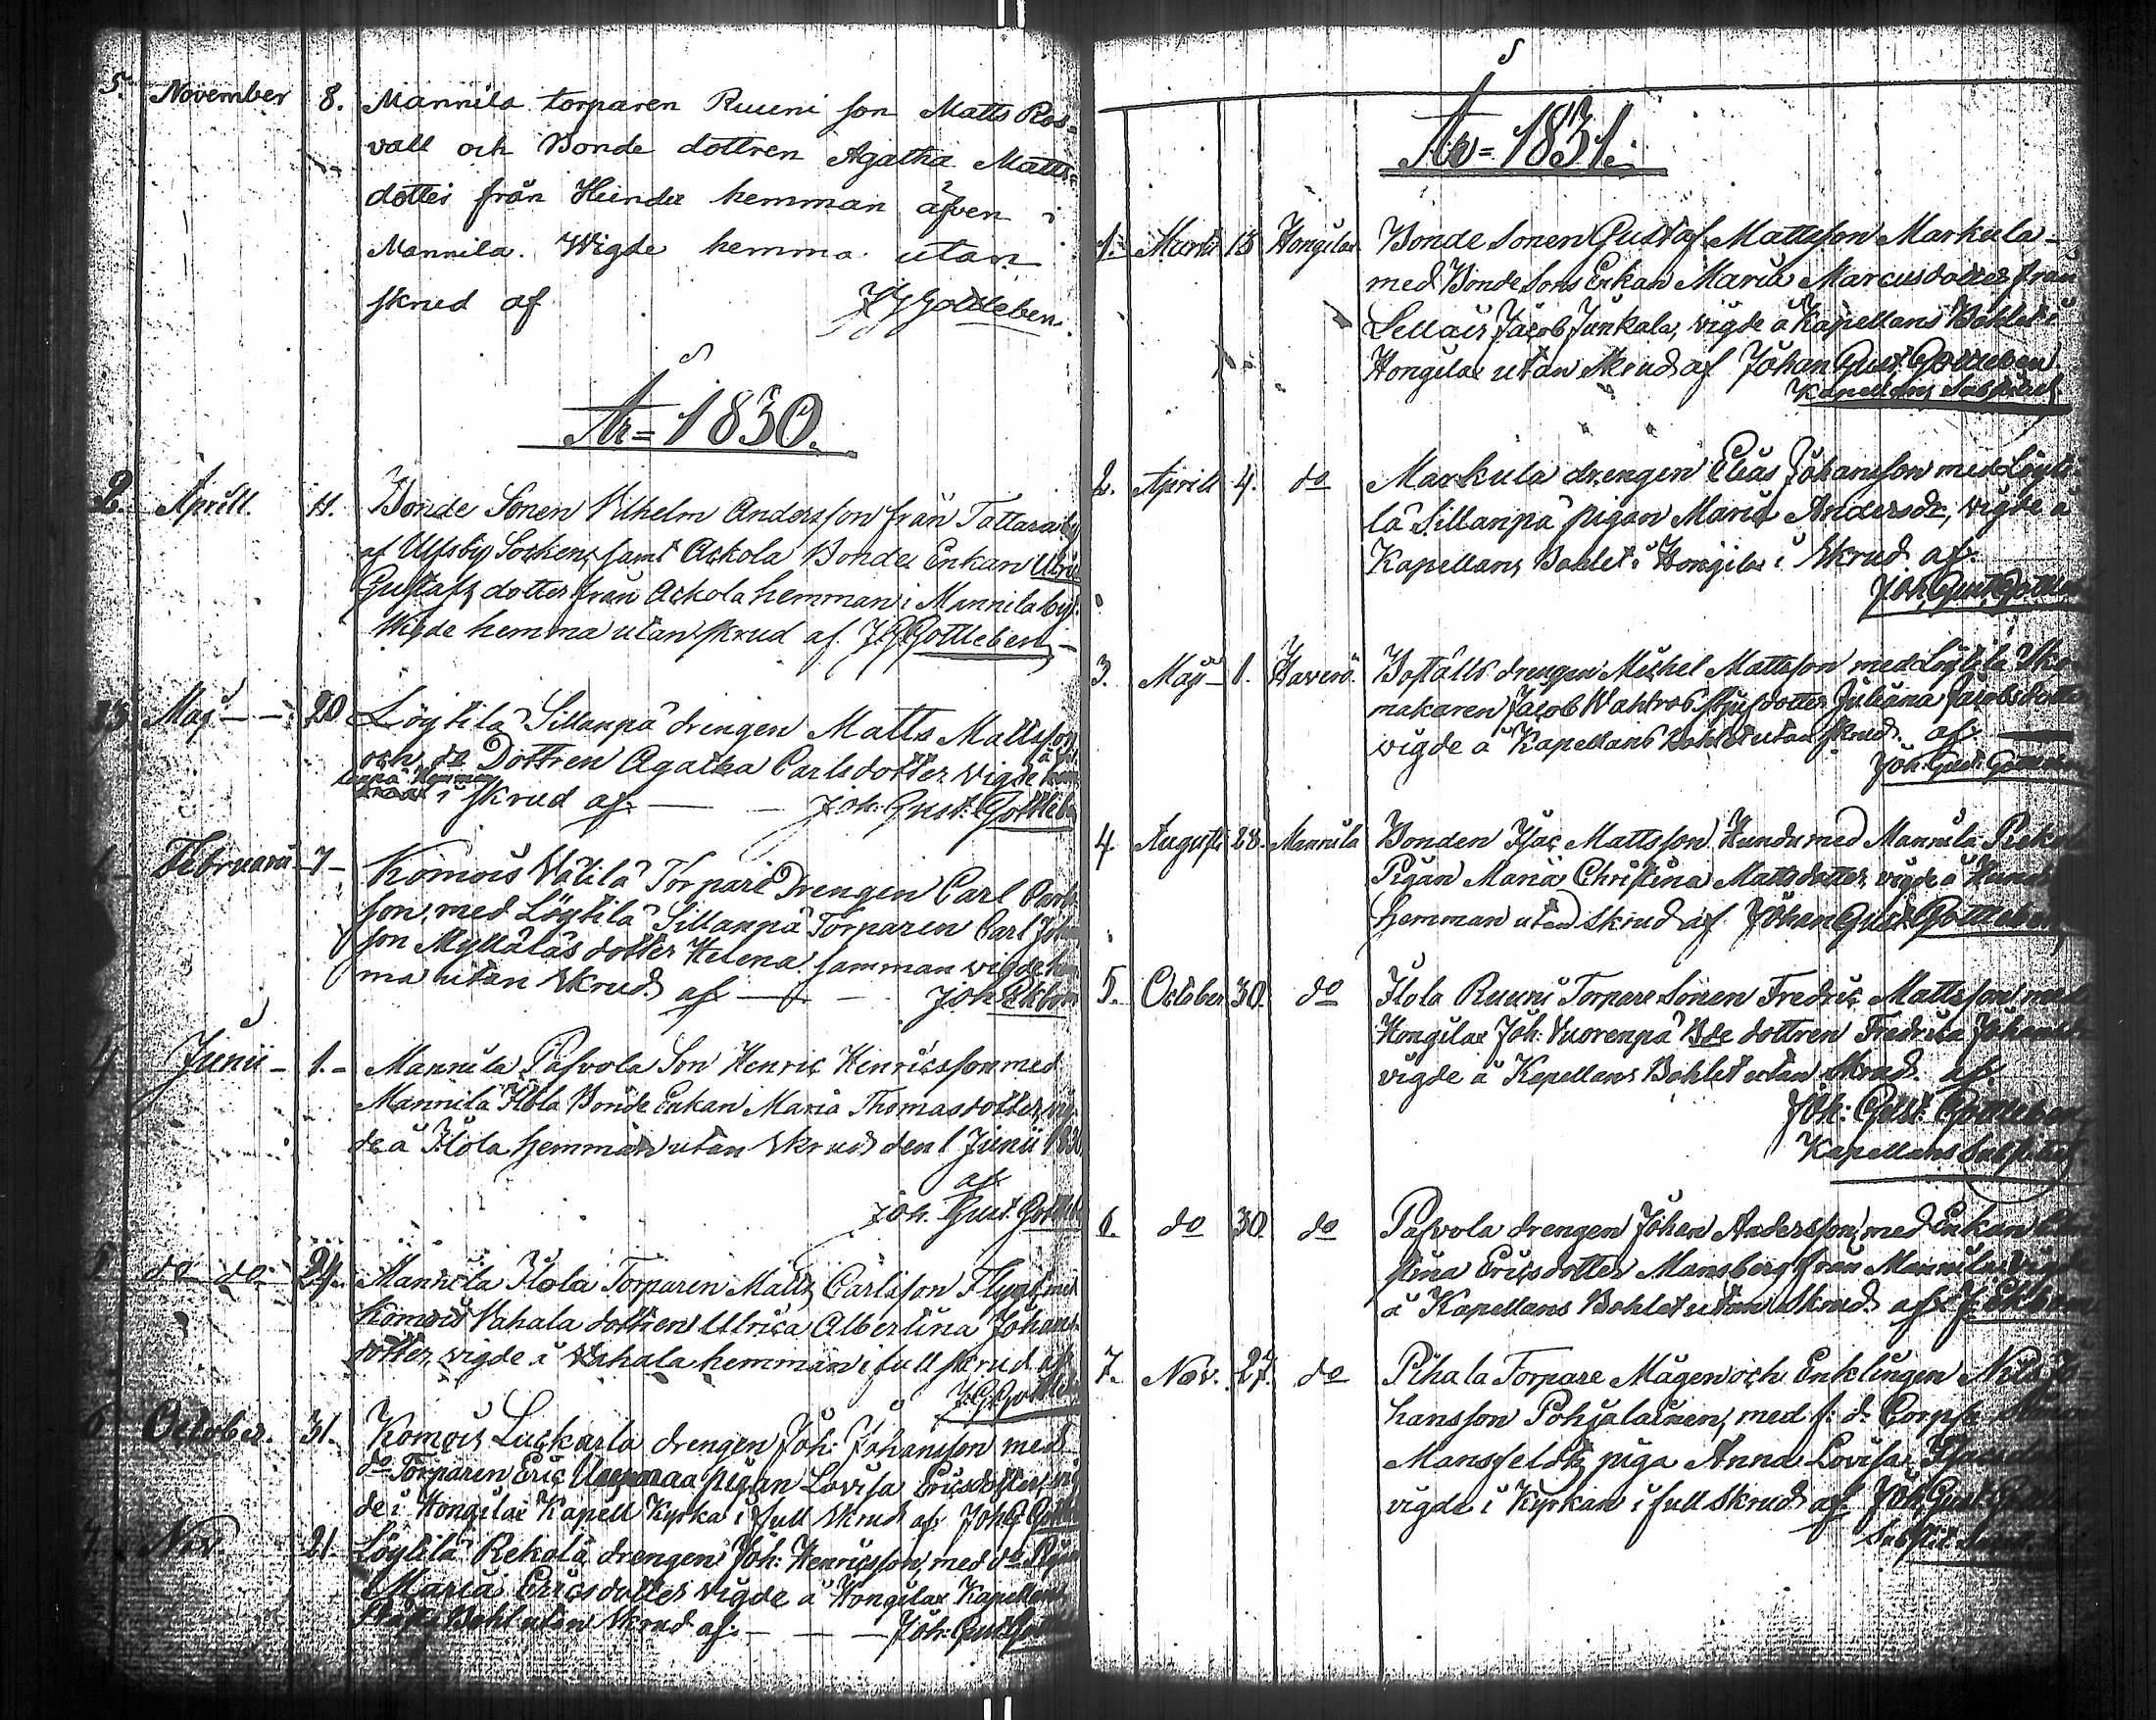 5. November 8. Mannila torparen Ruuni son Matts Ros-
vall och Bonde dottren Agatha Matts-
dotter från Heinder hemman äfven i
Mannila. Wigde hemma utan
skrud af J G Gottleben.
År = 1830.
2 Aprill. 11. Bonde Sonen Vilhelm Andersson från Tattara by
af Ulfsby Sockens samt Ackola Bonde Enkan
Gustafs dotter från Ackola hemman i Mannila by.
Wigde hemma utan skrud af J. G. Gottleben
Maij 20 Löytilä Sillanpä drengen Matts Mattsson
och do Dottren Agatha Carlsdotter Vigde
i skrud af Joh. Gust. Gottleben
1 Februarii 7 Komois Vätilä Torpare Drengen Carl Carls
son, med Löytilä Sillanpä Torparen Carl Johan
son Mylläläs dotter Helena samman vigde hem
ma utan Skrud af Joh Ekbom
4 Junii 1. Mannila Pafvola Son Henric Hinricsson med
Mannila Ilola Bonde Enkan Maria Thomasdotter, vig-
de å Ilola hemman utan Skrud den 1 Junii 1830
af
Joh. Gust. Gottleb
5 do do 24. Mannila Ilola Torparen Matts Carlsson Flygt med
Komois Vahala dottren Ulrica Albertina Johans-
dotter, vigde å Vahala hemman i full skrud af
J. G. Gottleb
6 October. 31. Komois Luckarla drengen Joh: Johansson med
do Torparen Eric pigan Lovisa Ericsdotter, vig
de i Hongilax Kapell Kyrka i full Skrud af Joh G Gottl
Nov. 21. Löytilä Rekola drengen Joh: Henricsson, med do Pigan
Maria Ericsdotter vigde å Hongilax Kapellans
Bohl utan Skrud af Joh: Gust
År = 1831.
1. Martii 13 Hongilax Bonde Sonen Gustaf Mattsson Markula
med Bonde Sons Enkan Maria Marcusdotter från
Sellais Jacob Junkala, vigde å Kapellans Bohlet i
Hongilax utan Skrud af Johan Gust. Gottleben
Kapellans Substitut
2. Aprill 4. do Markula drengen Elias Johansson med Löyti-
lä Sillanpä pigan Maria Andersdr, vigde å
Kapellans Bohlet i Hongilax i Skrud af
Joh. Gust. Gottleb
3. Maij 1. Haverö. Boställs drengen Michel Mattsson med Löytilä Sko
makaren Jacob Wahlros Styfdotter Juliana Jacobsdotter
vigde å Kapellans Bohlet utan Skrud af
Joh. Gust. Gottleb
4. Augusti 28. Mannila Bonden Isac Mattsson Hunder med Mannila Rek
Pigan Maria Christina Mattsdotter, vigde å Hund
hemman utan Skrud af Johan Gust. Gottleben
5. October 30. do Ilola Ruuni Torpare Sonen Fredric Mattsson med
Hongilax Joh: Vuorenpä Bde dottren Fredrica Johans
vigde å Kapellans Bohlet utan Skrud af
Joh: Gust. Gottleben
Kapellans Substitut
6. do 30. do Pafvola drengen Johan Andersson, med Enkan
stina Ericsdotter Mansberg från Mannila vigde
å Kapellans Bohlet utan Skrud af J. Ekbom
7. Nov. 27. do Pihala Torpare Mågen och Enklingen Nils Jo
hansson Pohjalainen, med f: d: Corpr
Mansfeldts piga Anna Lovisa
vigde i Kyrkan i full Skrud af Joh Gust
Substit.